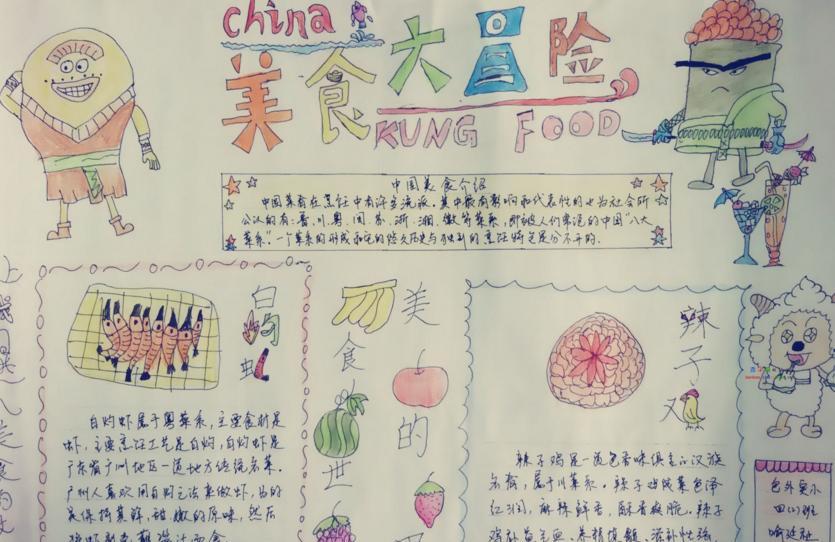 china
美食大冒险
KUNG FOOD
中国美食介绍
中国菜肴在烹饪中有许多流派。其中最有影响和代表性的也为社会所
公认的有：鲁、川、粤、闽、苏、浙、湘、徽等菜系，即被人们常说的中国“八大
菜系”。一个菜系的形成和它的悠久历史与独到的烹饪特色是分不开的。
白灼虾
白灼虾属于粤菜系，主要食材是
虾，主要烹饪工艺是白灼，白灼虾是
广东省广州地区一道地方传统名菜。
广州人喜欢用白灼之法来做虾，为的
是保持其鲜、甜、嫩的原味，然后
美食
的
世
辣子
辣子鸡是一道色香味俱全的汉族
名肴，属于川菜系。辣子鸡成菜色泽
红润，麻辣鲜香，酥香爽脆。辣子
上
美食